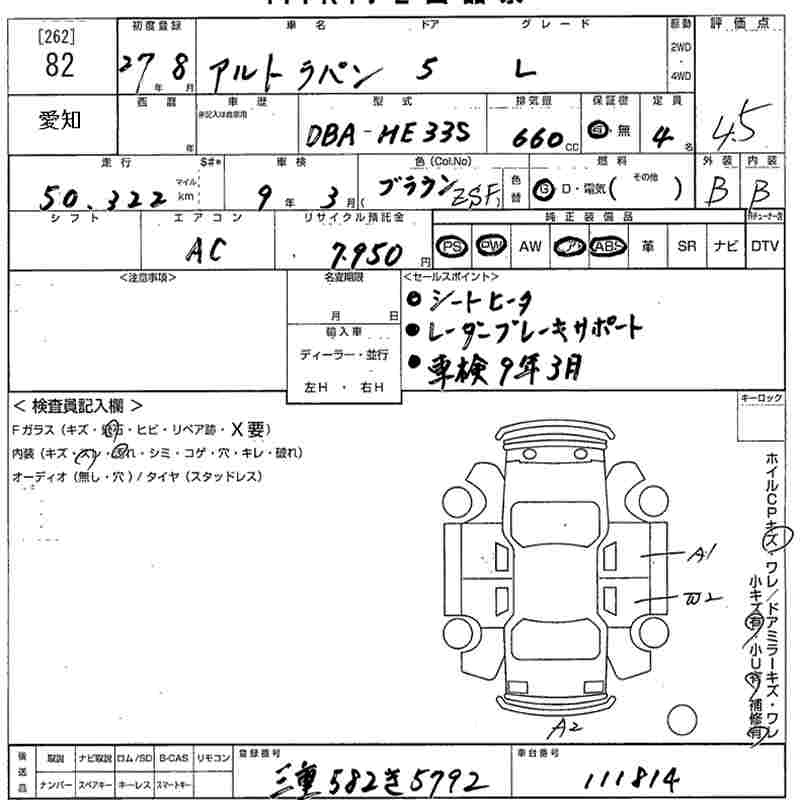 [262]
82
初度登録 車名 ドア グレード 駆動 評価点
27年 8月 アルト ラパン 5 L 2WD・4WD 4.5
愛知
西暦 車歴 型式 排気量 保証書 定員
年 DBA-HE33S 660cc 有・無 4名
走行 S#* 車検 色(Col.No) 燃料 外装 内装
50,322 マイル km 9年 3月( ブラウン ZSF) 色替 G・D・電気( その他 ) B B
シフト エアコン リサイクル預託金 純正装備品
AC 7,950円 PS PW AW ABS 革 SR ナビ DTV
<注意事項> 名変期限 <セールスポイント>
月 日 ●シートヒータ
輸入車 ●レーダーブレーキサポート
ディーラー・並行 ●車検 9年3月
左H・右H
< 検査員記入欄 > キーロック
Fガラス(キズ・飛石・ヒビ・リペア跡・X要)
内装(キズ・スレ・汚れ・シミ・コゲ・穴・キレ・破れ)
オーディオ(無し・穴)/タイヤ(スタッドレス)
ホイルCPキズ・ワレ/ドアミラーキズ・ワレ
小キズ有/小U有/補修有
A1
W2
A2
後送品 取説 ナビ取説 ロム/SD B-CAS リモコン 登録番号 車台番号
ナンバー スペアキー キーレス スマートキー 三重 582 き 5792 111814